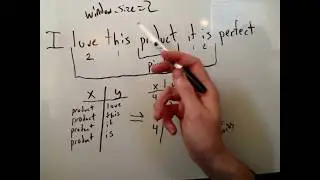 window_size=2
I love this product it is perfect
2 1 1 2
x y
product love
product this
product it
product is
⇒
x
4
4